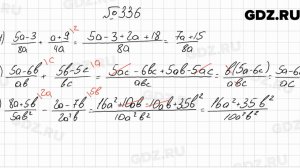 GDZ.RU
№336
) \frac{5a-3}{8a} + \frac{a+9}{4a}^{\2} = \frac{5a-3+2a+18}{8a} = \frac{7a+15}{8a}
) \frac{5a-6b}{ab}^{\c} + \frac{5b-5c}{bc}^{\a} = \frac{5ac-6bc+5ab-5ac}{abc} = \frac{b(5a-6c)}{abc} = \frac{5a-6c}{ac}
) \frac{8a+5b}{5ab^2}^{\2a} - \frac{2a-7b}{2a^2b}^{\5b} = \frac{16a^2+10ab-10ab+35b^2}{10a^2b^2} = \frac{16a^2+35b^2}{10a^2b^2}
GDZ.RU